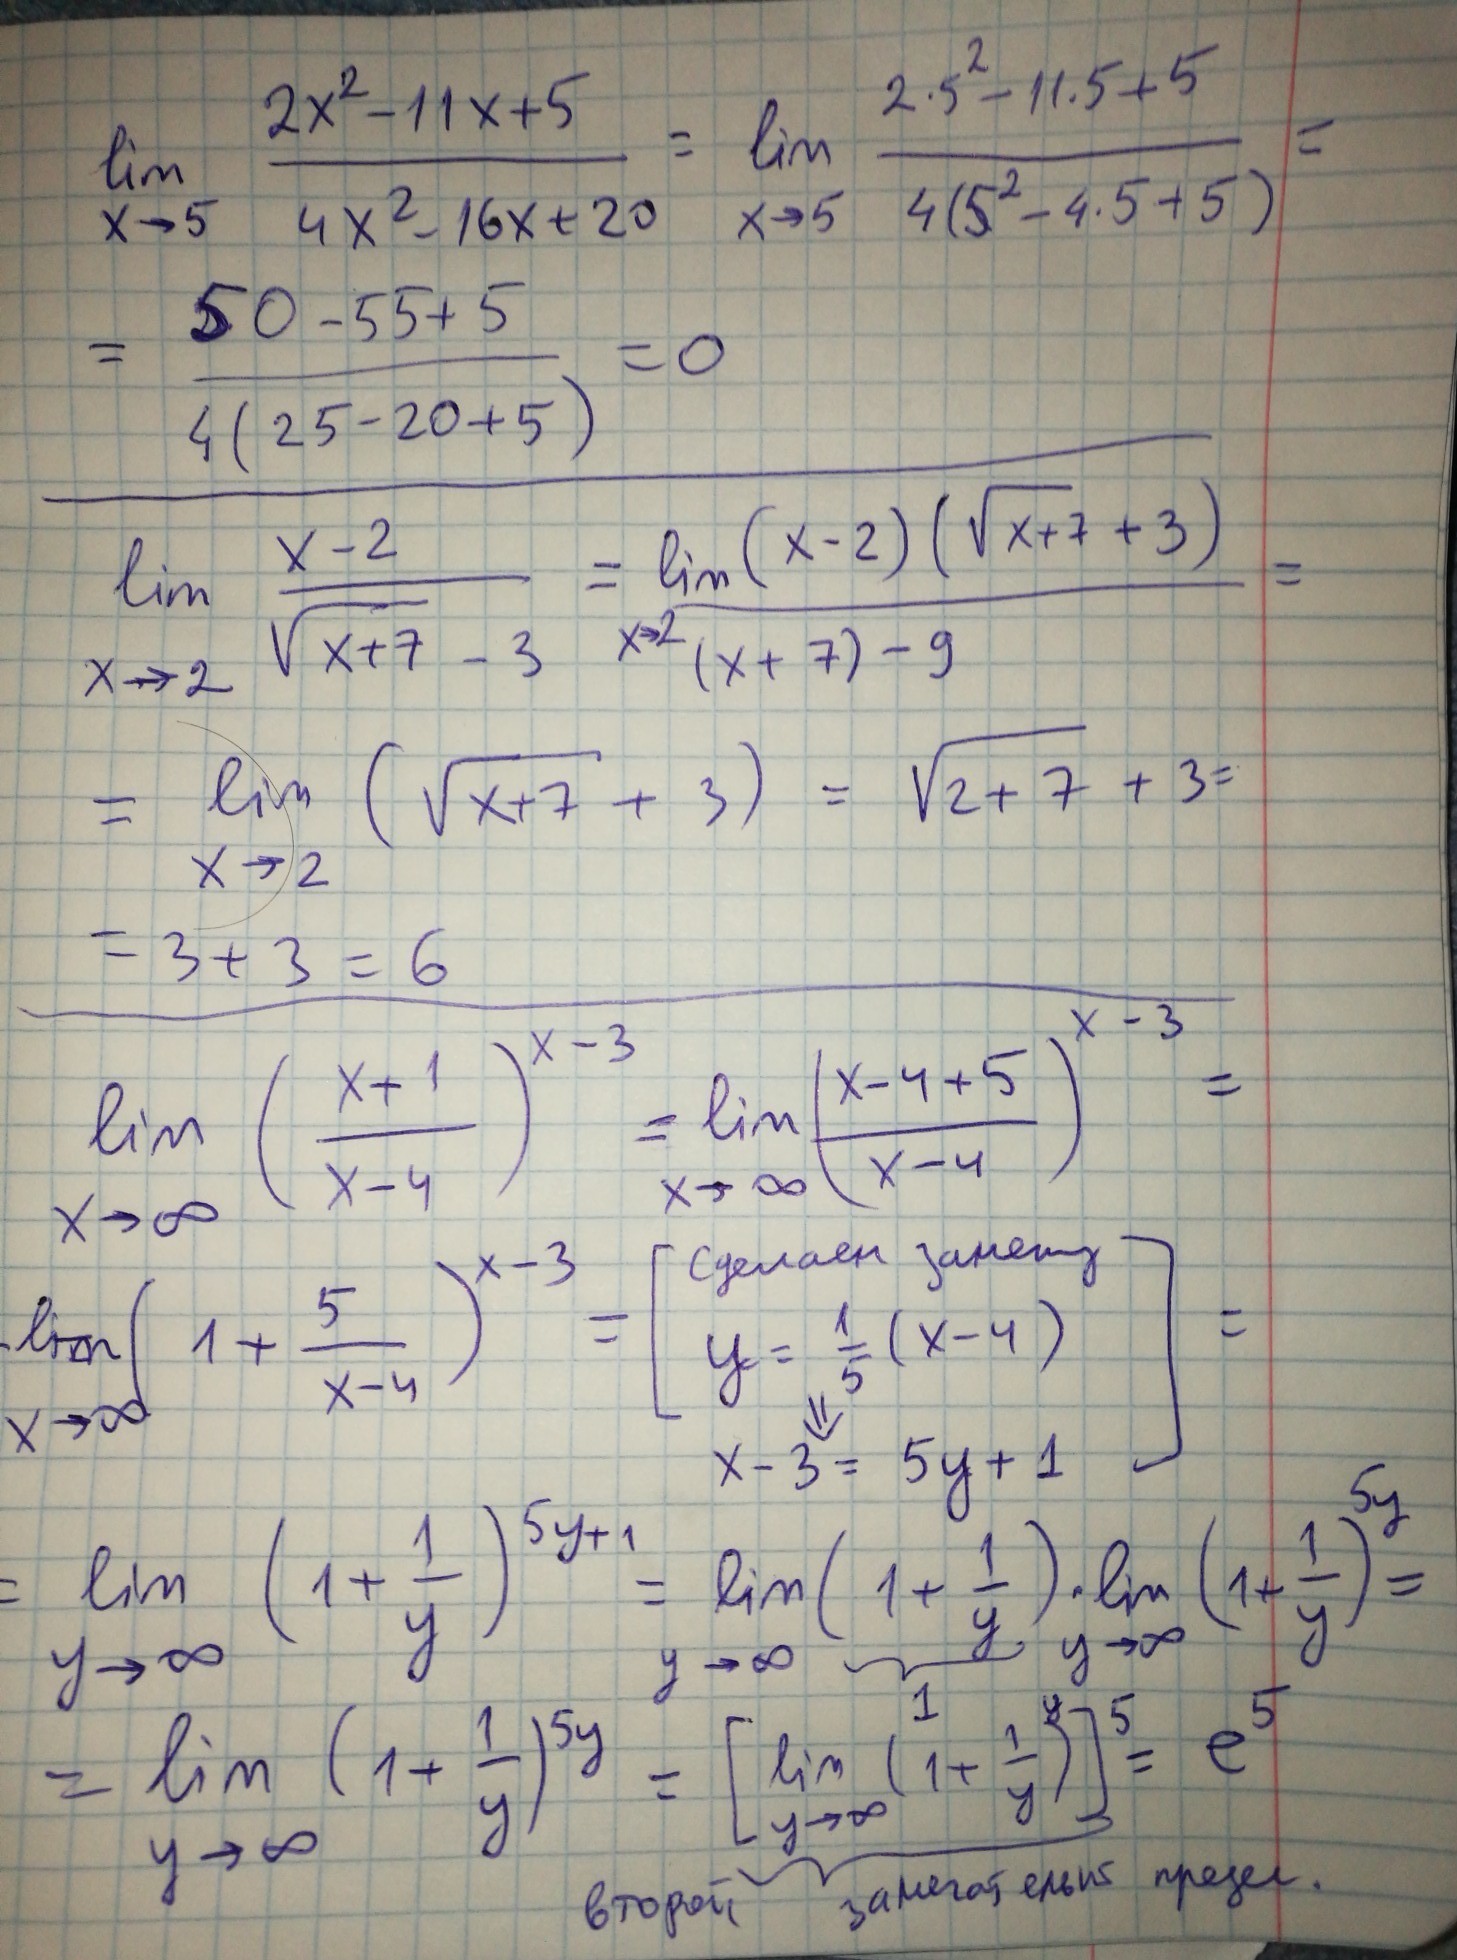 lim x→5 (2x² - 11x + 5)/(4x² - 16x + 20) = lim x→5 (2·5² - 11·5 + 5)/(4(5² - 4·5 + 5)) =
= (50 - 55 + 5)/(4(25 - 20 + 5)) = 0
lim x→2 (x - 2)/(√(x+7) - 3) = lim x→2 ((x - 2)(√(x+7) + 3))/((x + 7) - 9) =
= lim x→2 (√(x+7) + 3) = √(2 + 7) + 3 =
= 3 + 3 = 6
lim x→∞ ((x + 1)/(x - 4))^(x - 3) = lim x→∞ ((x - 4 + 5)/(x - 4))^(x - 3) =
lim x→∞ (1 + 5/(x - 4))^(x - 3) = [сделаем замену
y = 1/5 (x - 4)
⇓
x - 3 = 5y + 1] =
= lim y→∞ (1 + 1/y)^(5y + 1) = lim y→∞ (1 + 1/y) · lim y→∞ (1 + 1/y)^(5y) =
1
= lim y→∞ (1 + 1/y)^(5y) = [lim y→∞ (1 + 1/y)^y]^5 = e^5
второй замечательный предел.